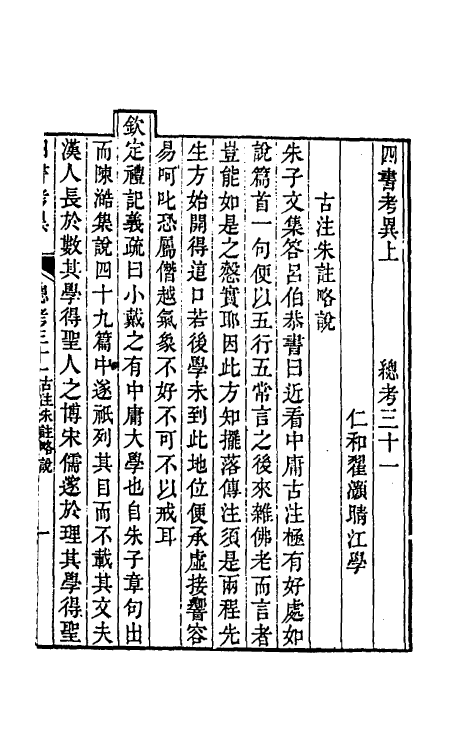 四書考異上　　總考三十一
仁和翟灝晴江學
古注朱註略說
朱子文集答呂伯恭書曰近看中庸古注極有好處如
說篇首一句便以五行五常言之後來雜佛老而言者
豈能如是之慤實耶因此方知擺落傳注須是兩程先
生方始開得這口若後學未到此地位便承虛接響容
易呵叱恐屬僭越氣象不好不可不以戒耳
欽定禮記義疏曰小戴之有中庸大學也自朱子章句出
而陳澔集說四十九篇中遂祇列其目而不載其文夫
漢人長於數其學得聖人之博宋儒邃於理其學得聖
四書考異　總考三十一古注朱註略說　一